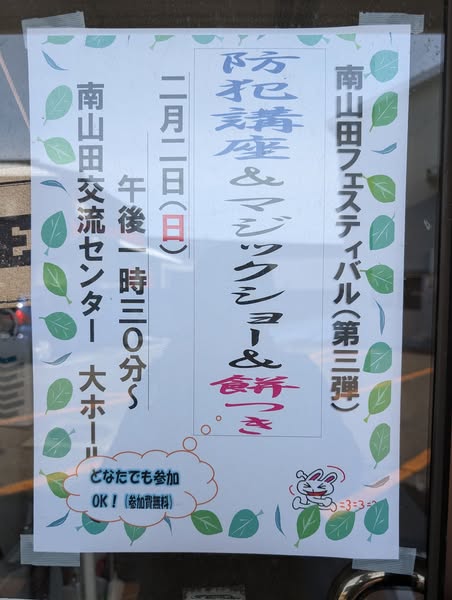 南山田フェスティバル(第三弾)
防犯講座&マジックショー&餅つき
二月二日(日)
午後一時三〇分～
南山田交流センター 大ホール
どなたでも参加
OK！(参加費無料)
=3=3=3